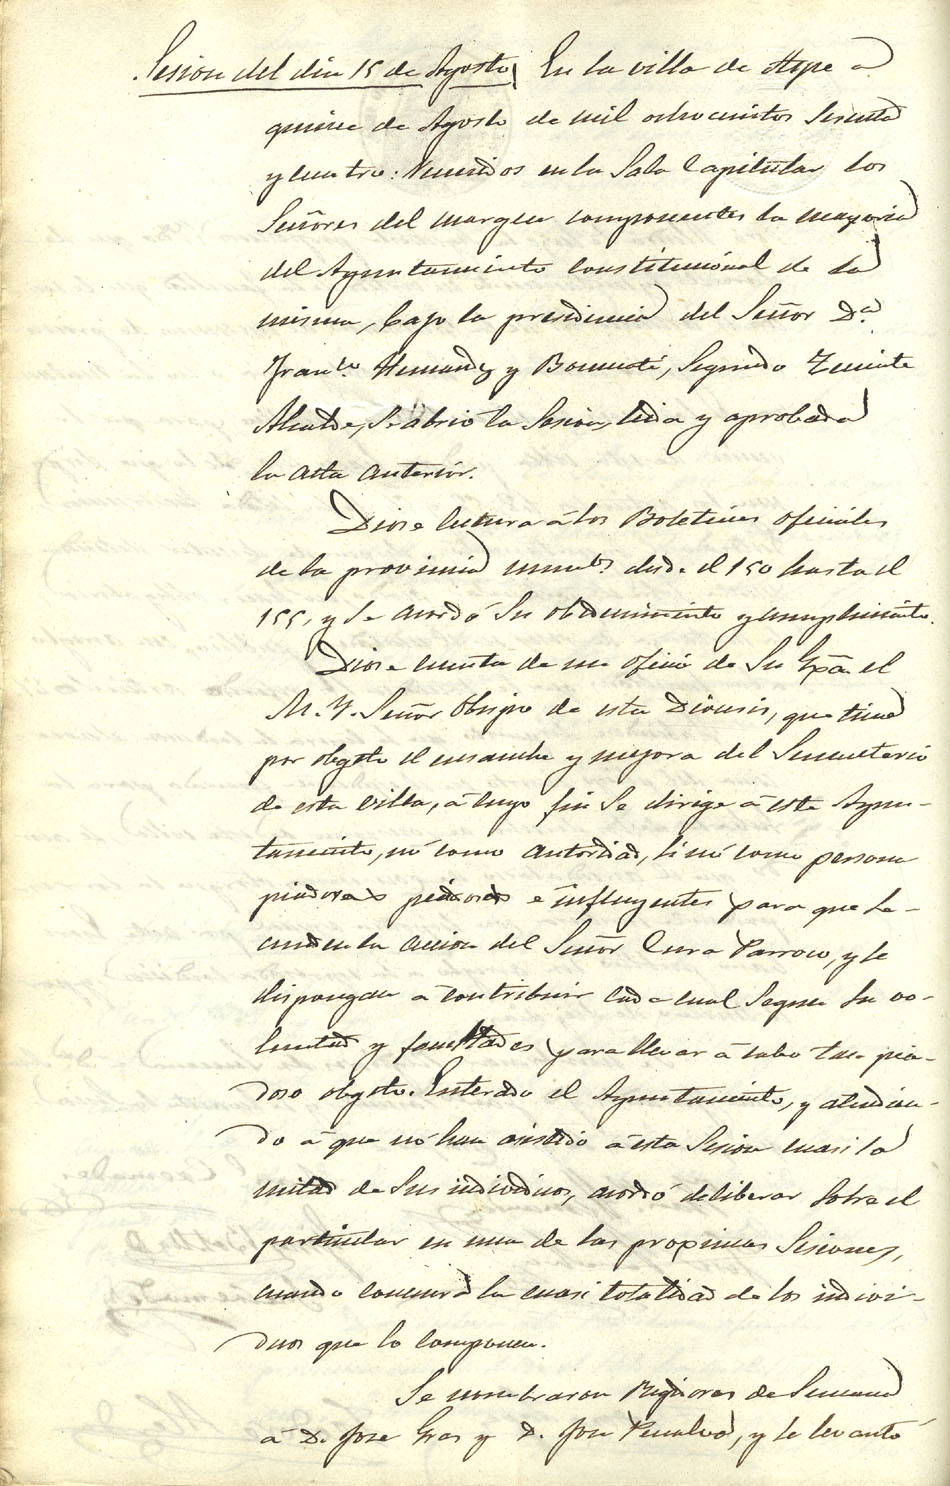 Sesion del dia 15 de Agosto, En la villa de Aspe a
quince de Agosto de mil ochocientos sesenta
y cuatro: Reunidos en la Sala Capitular los
Señores del margen componentes la mayoria
del Ayuntamiento constitucional de la
misma, bajo la presidencia del Señor Dn.
Franco. Hernandz y Bonmatí, Segundo Teniente
Alcalde, Se abrió la Sesion, leida y aprobada
la acta anterior.
Diose lectura á los Boletines oficiales
de la provincia numos. desde el 150 hasta el
155, y se acordó su obedecimiento y cumplimiento.
Diose cuenta de un oficio de Su Ea. el
M. Y. Señor Obispo de esta Diocesis, que tiene
por obgeto el ensanche y mejora del Sementerio
de esta villa, á cuyo fin se dirige á este Ayun-
tamiento, nó como autoridad, si nó como personas
piadosas é influyentes para que se-
cunden la accion del Señor Cura Parroco, y se
dispongan á contribuir cada cual segun su vo-
luntad y facultades para llevar á cabo tan pia-
doso obgeto. Enterado el Ayuntamiento, y atendien-
do á que nó han asistido á esta Sesion cuasi la
mitad de sus individuos, acordó deliberar sobre el
particular en una de las proximas Sesiones,
cuando concurra la cuasi totalidad de los indivi-
duos que lo componen.
Se nombraron Regidores de Semana
á D. Jose Gras y D. Jose Penalva, y se levantó